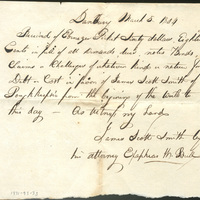 Danbury March 5. 1804
Received of Ebenezer Sixty dollars Eighty
Cents in full of all demands due notes Bonds
Claims & Challenges of whatever kinds or nature
Debt or Cost in favor of James Scott Smith of
Poughkeepsie from the beginning of the World to
this day — As Witness my hand
James Scott Smith by
his attorney Elaphas H. Buck